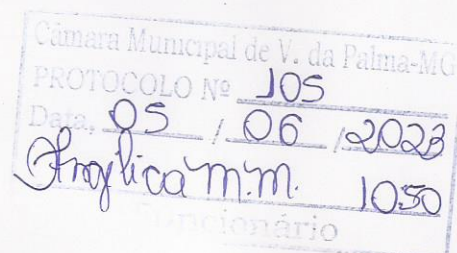 Câmara Municipal de V. da Palma-MG
PROTOCOLO Nº 105
Data, 05 / 06 / 2023
Angélica M.M. 1050
Funcionário